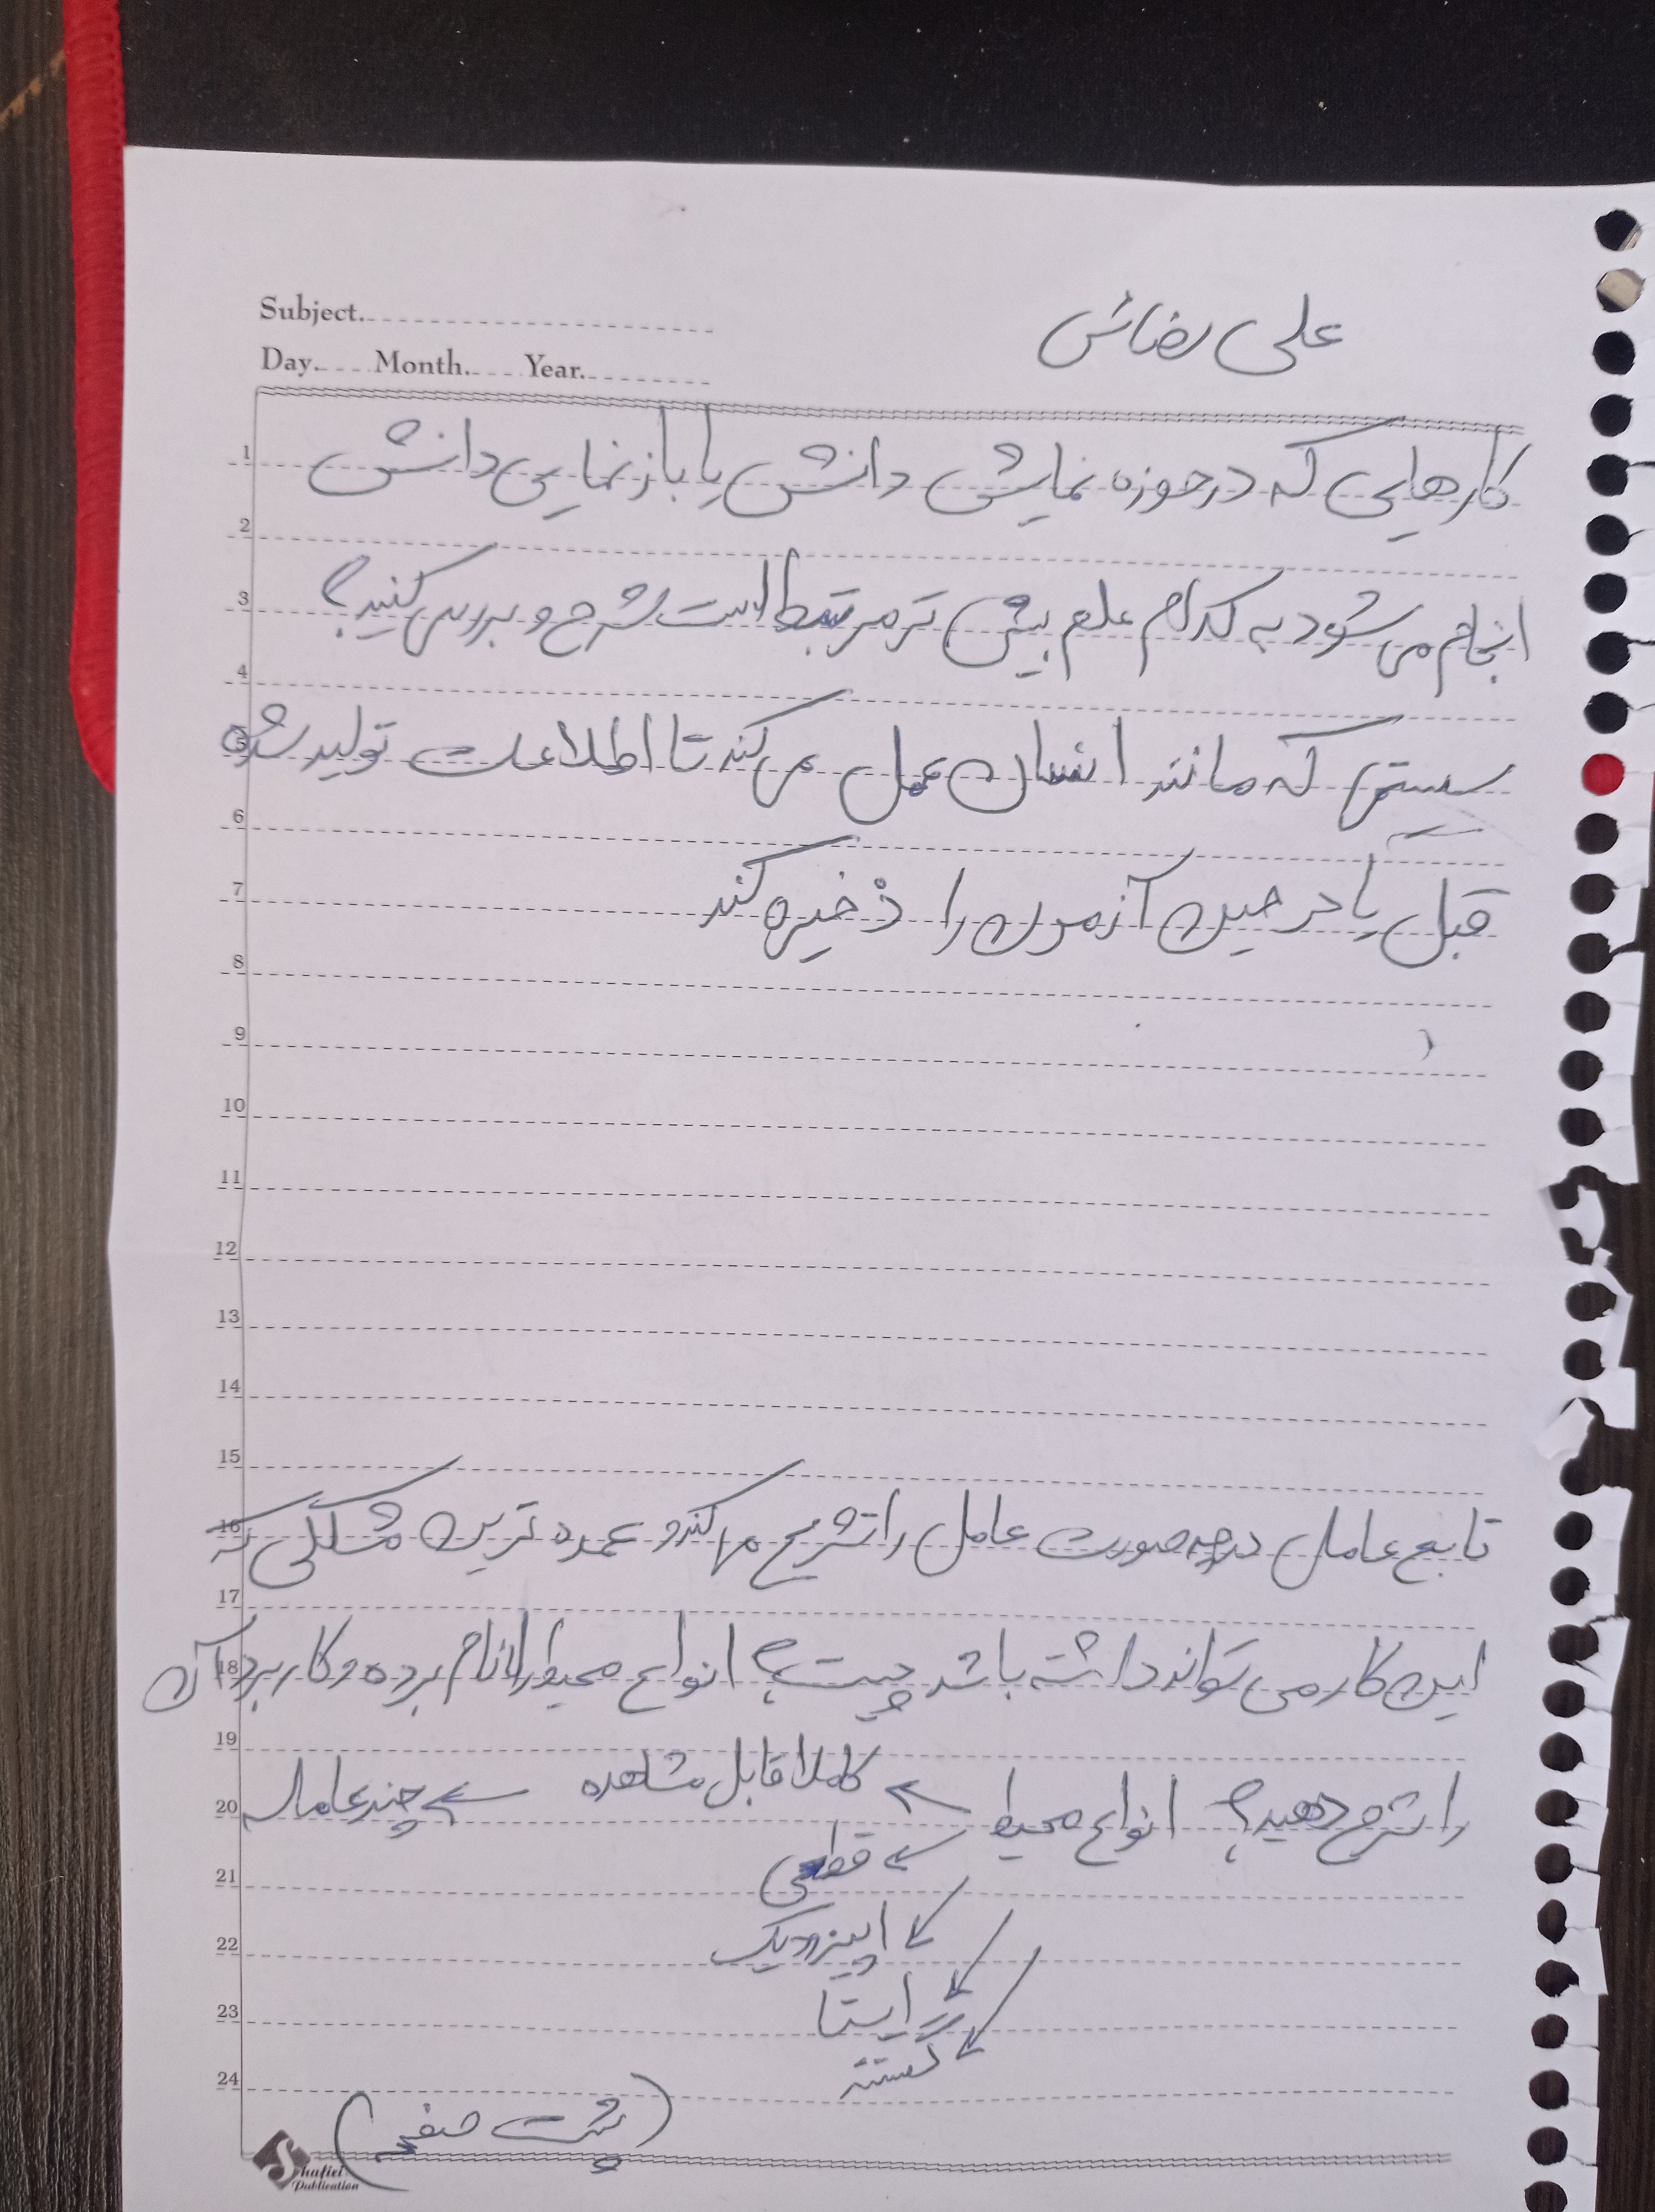 علی رضائی
Subject.
Day. Month. Year.
1 کارهایی که در حوزه نمایش دانش یا بازنمایی دانش
2
3 انجام می شود به کدام علم بیش تر مرتبط است شرح و بررسی کنید؟
4
5 سیستمی که مانند انسان عمل می کند تا اطلاعات تولید شده
6
7 قبل یا در حین آزمون را ذخیره کند
8
9
10
11
12
13
14
15
16 تابع عامل در چه صورت عامل را تشریح می کند و عمده ترین مشکلی که
17
18 این کار می تواند داشته باشد چیست؟ انواع محیط را نام برده و کاربرد آن
19
20 را شرح دهید؟ انواع محیط ← کاملا قابل مشاهده ← چند عامله
21 ← قطعی
22 ↙ اپیزودیک
23 ↙ ایستا
24 ↙ گسسته
(پشت صفحه)
Shafiei Publication